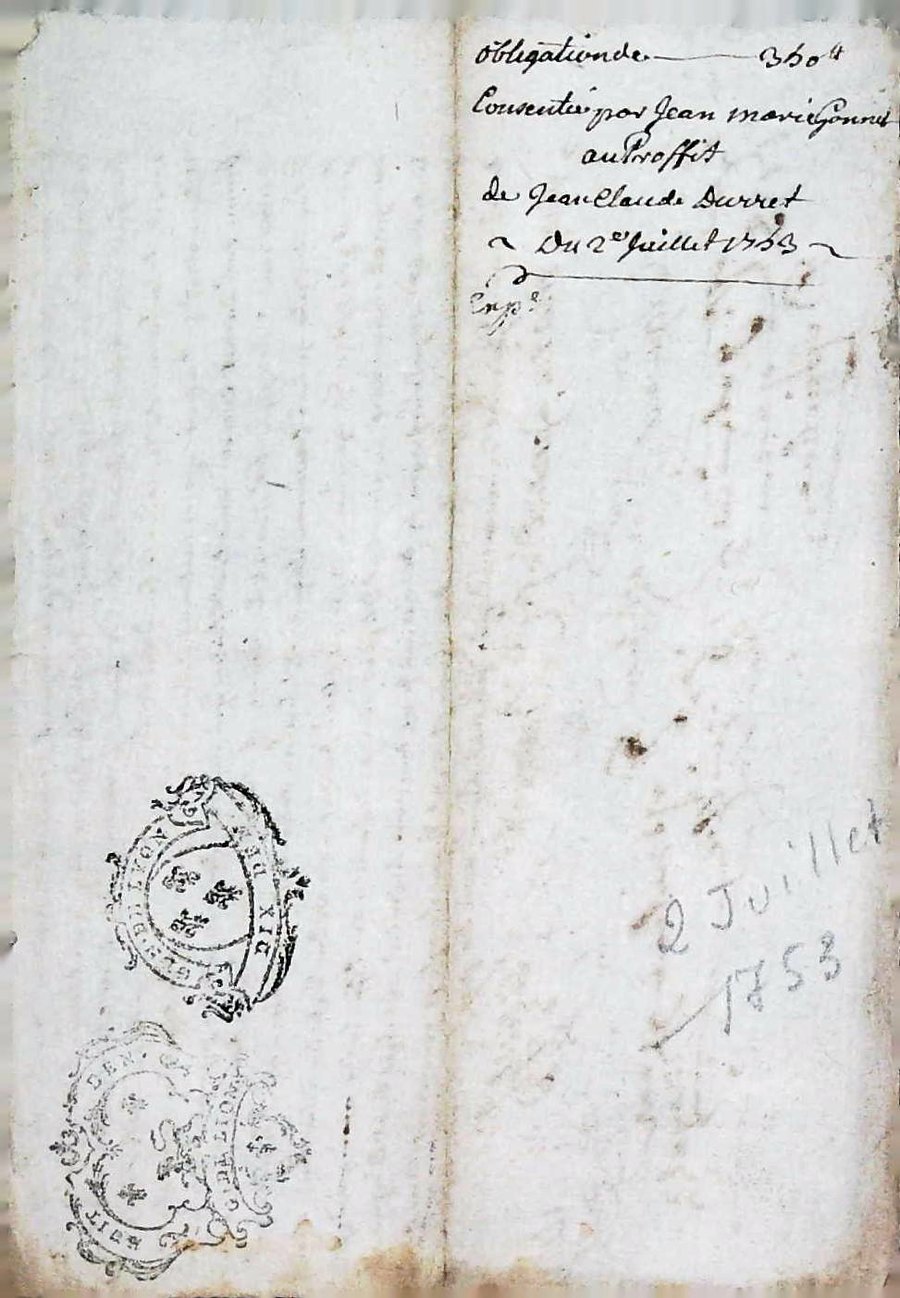 obligation de 350 ll
Consentie par Jean marie Gonnet
au Proffit
de Jean Claude Durret
Du 2e Juillet 1753
Exp.e
GEN. DE LYON
DIX DEN.
DEN.
G. DE LION
HUIT
2 Juillet
1753